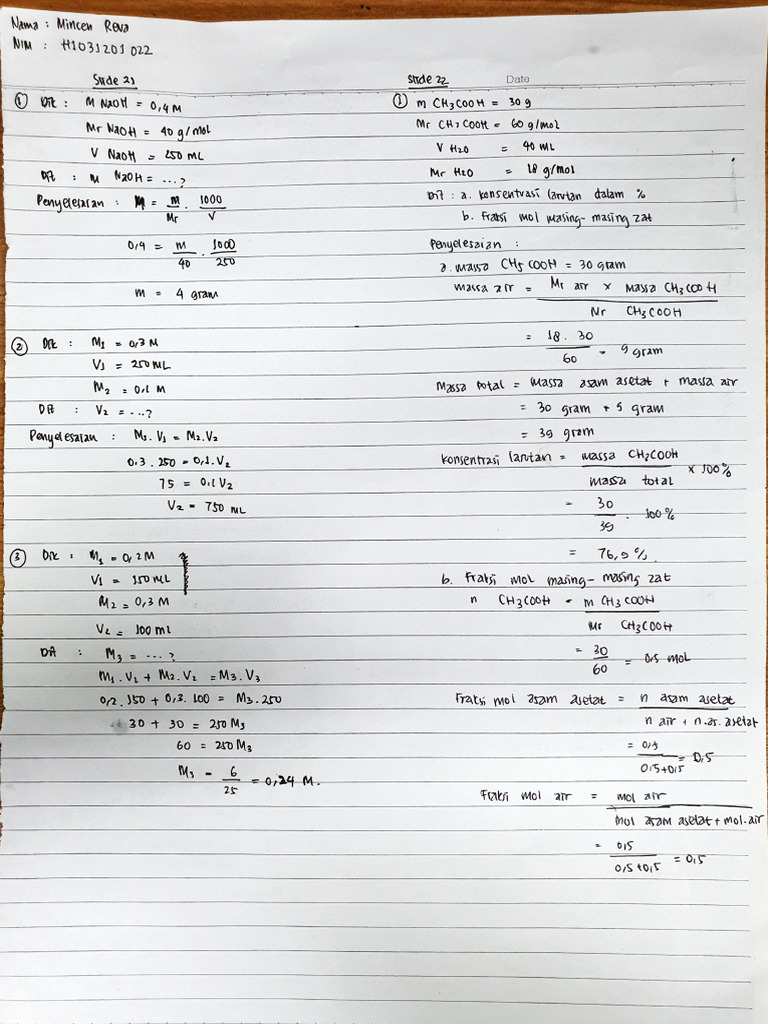 Nama : Mincen Reva
NIM : H1031201 022
Slide 21
① Dik : M NaOH = 0,4 M
Mr NaOH = 40 g/mol
V NaOH = 250 mL
Dit : m NaOH = ...?
Penyelesaian : M = m/Mr . 1000/V
0,4 = m/40 . 1000/250
m = 4 gram
② Dik : M1 = 0,3 M
V1 = 250 mL
M2 = 0,1 M
Dit : V2 = ...?
Penyelesaian : M1. V1 = M2. V2
0,3 . 250 = 0,1. V2
75 = 0,1 V2
V2 = 750 mL
③ Dik : M1 = 0,2 M
V1 = 150 mL
M2 = 0,3 M
V2 = 100 ml
Dit : M3 = ...?
M1. V1 + M2. V2 = M3. V3
0,2 . 150 + 0,3 . 100 = M3 . 250
30 + 30 = 250 M3
60 = 250 M3
M3 = 6/25 = 0,24 M.
Slide 22
Date
① m CH3COOH = 30 g
Mr CH3COOH = 60 g/mol
V H2O = 40 mL
Mr H2O = 18 g/mol
Dit : a. konsentrasi larutan dalam %
b. Fraksi mol masing-masing zat
Penyelesaian :
a. massa CH3COOH = 30 gram
massa air = Mr air x Massa CH3COOH / Mr CH3COOH
= 18 . 30 / 60 = 9 gram
Massa total = massa asam asetat + massa air
= 30 gram + 9 gram
= 39 gram
konsentrasi larutan = massa CH3COOH / massa total x 100%
= 30/39 . 100%
= 76,9 %
b. Fraksi mol masing-masing zat
n CH3COOH = m CH3COOH / Mr CH3COOH
= 30/60 = 0,5 mol
Fraksi mol asam asetat = n asam asetat / n air + n. as. asetat
= 0,5 / 0,5+0,5 = 0,5
Fraksi mol air = mol air / mol asam asetat + mol. air
= 0,5 / 0,5+0,5 = 0,5